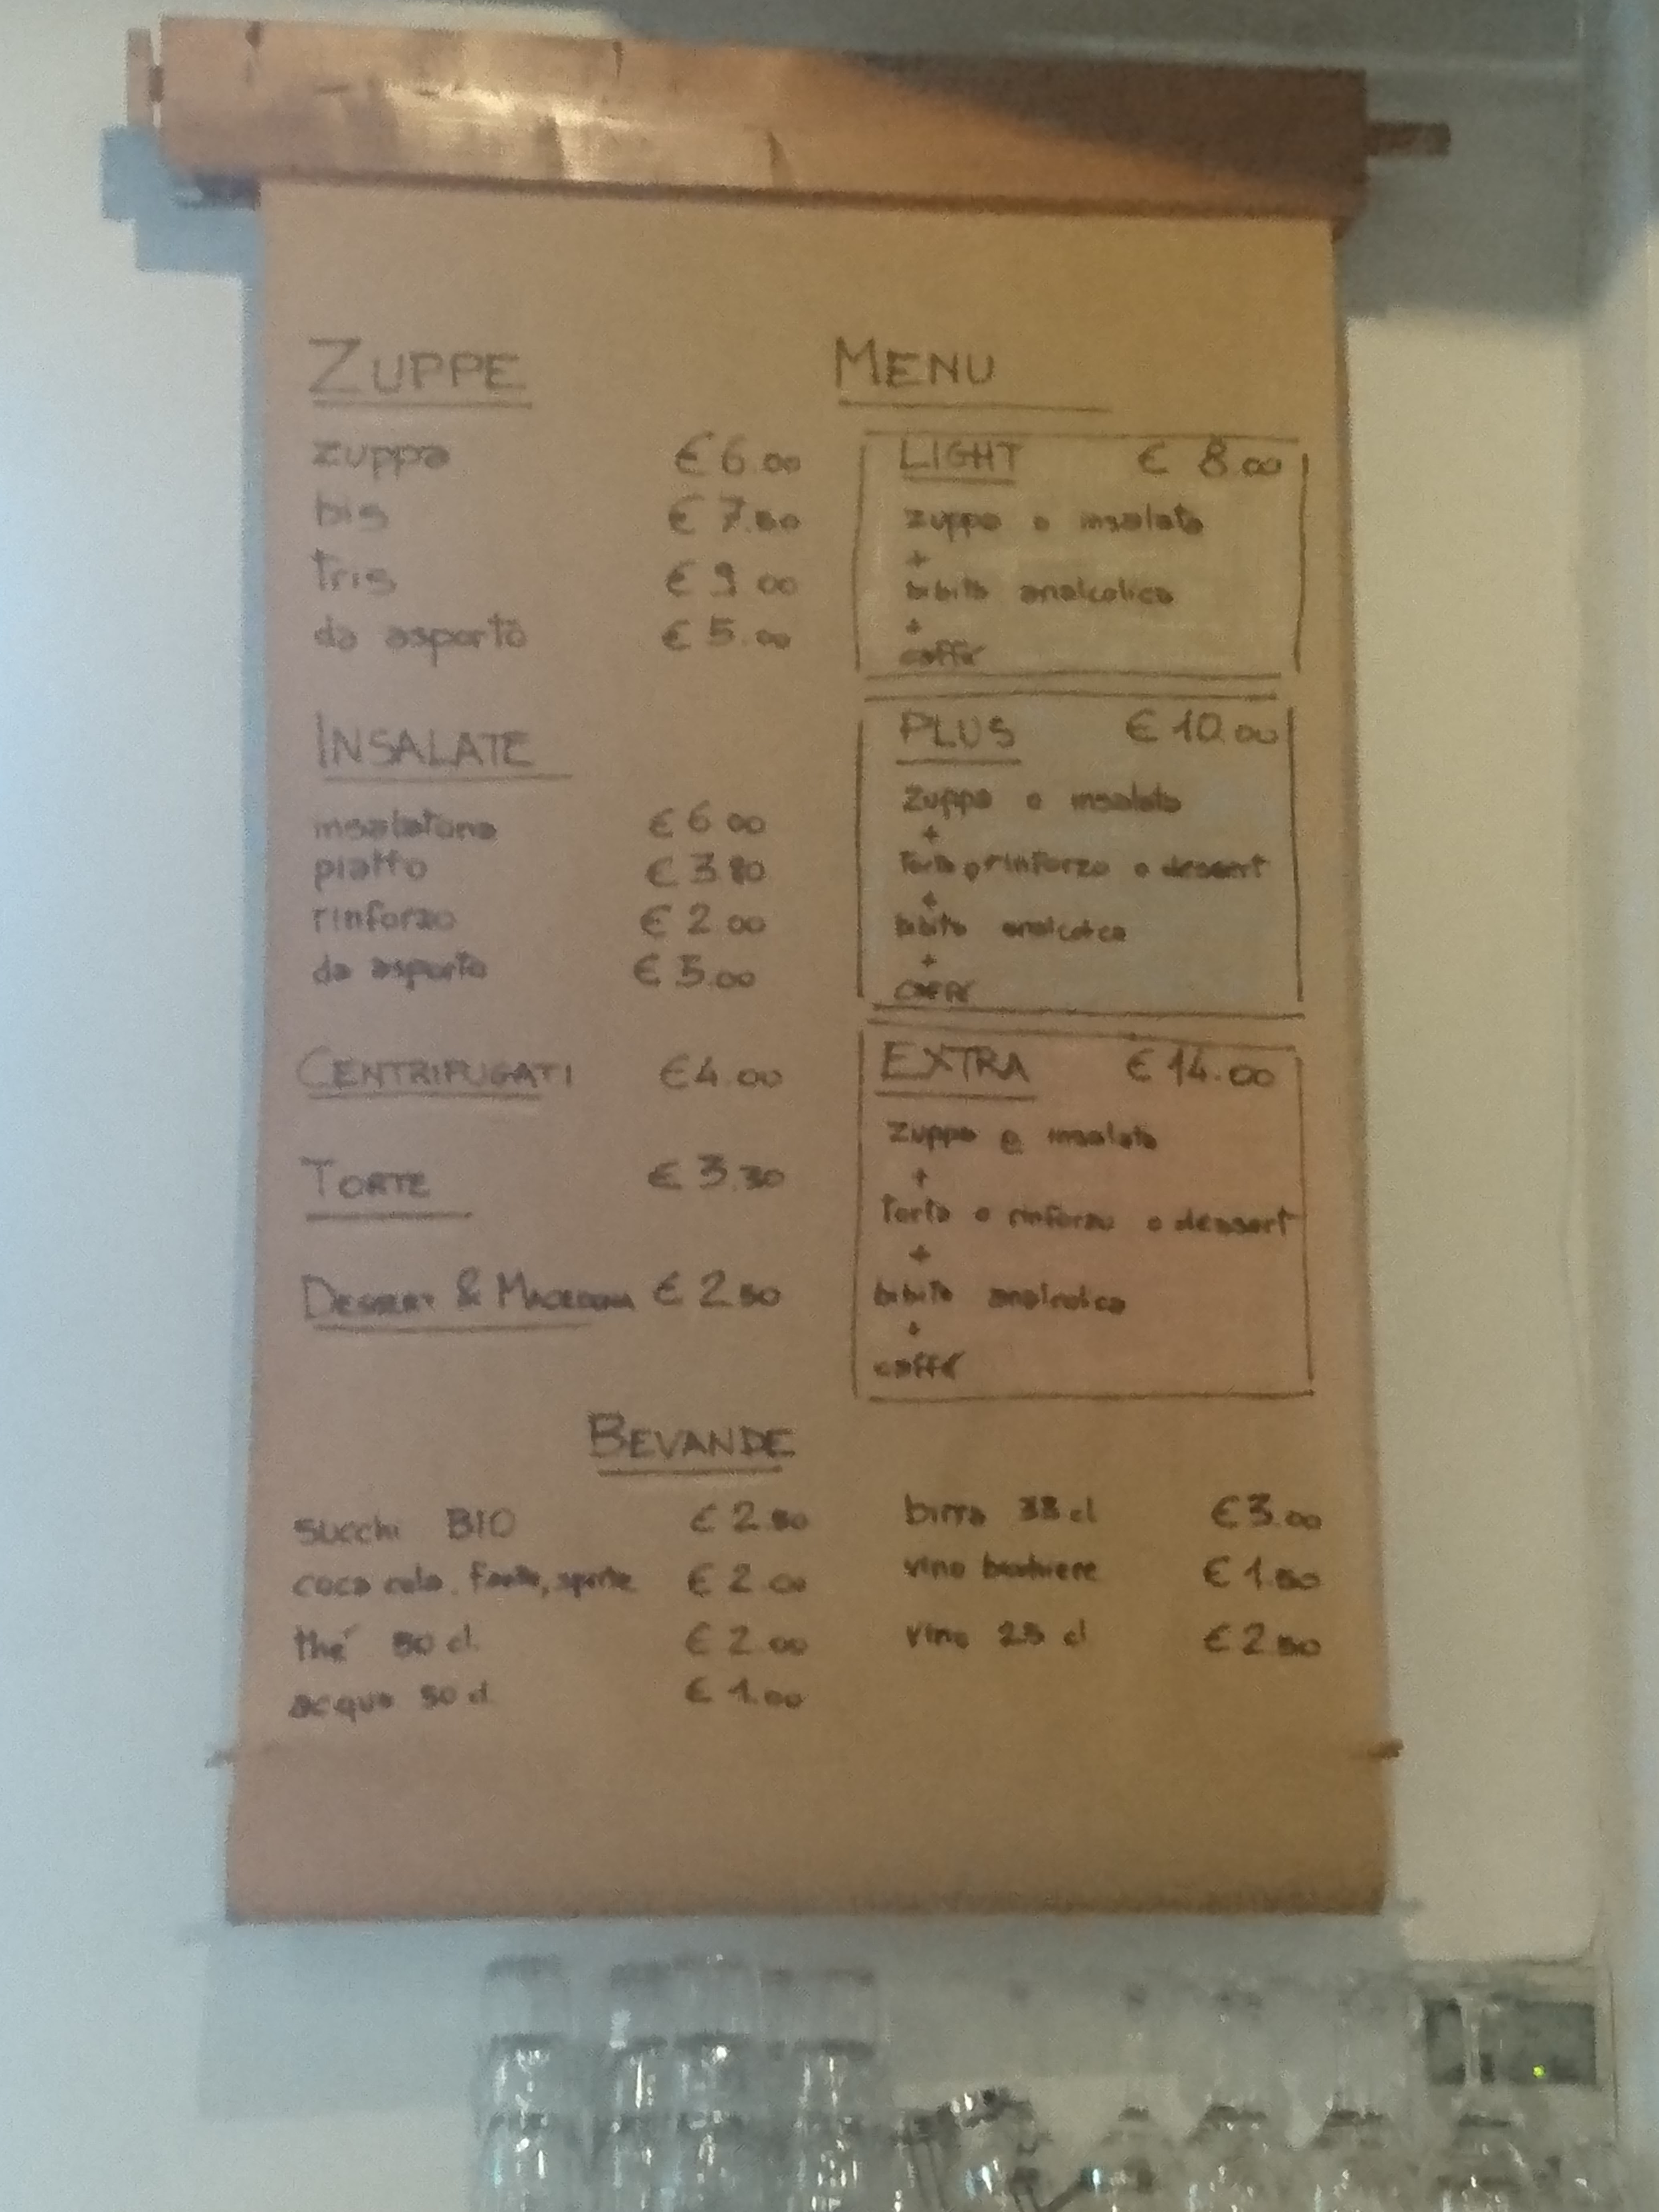 ZUPPE
zuppa € 6.00
bis € 7.50
tris € 9.00
da asporto € 5.00
INSALATE
insalatona € 6.00
piatto
rinforzo € 2.00
da asporto € 5.00
CENTRIFUGATI € 4.00
TORTE
DESSERT & MACEDONIA € 2.50
MENU
LIGHT € 8.00
zuppa o insalata
+
bibita analcolica
+
caffè
PLUS € 10.00
zuppa o insalata
+
torta o rinforzo o dessert
+
bibita analcolica
+
caffè
EXTRA € 14.00
zuppa e insalata
+
torta o rinforzo o dessert
+
bibita analcolica
+
caffè
BEVANDE
succhi BIO € 2.50
coca cola, fanta, sprite € 2.00
thé 50 cl € 2.00
acqua 50 cl € 1.00
birra 33 cl € 3.00
vino bicchiere € 1.50
vino 25 cl € 2.50